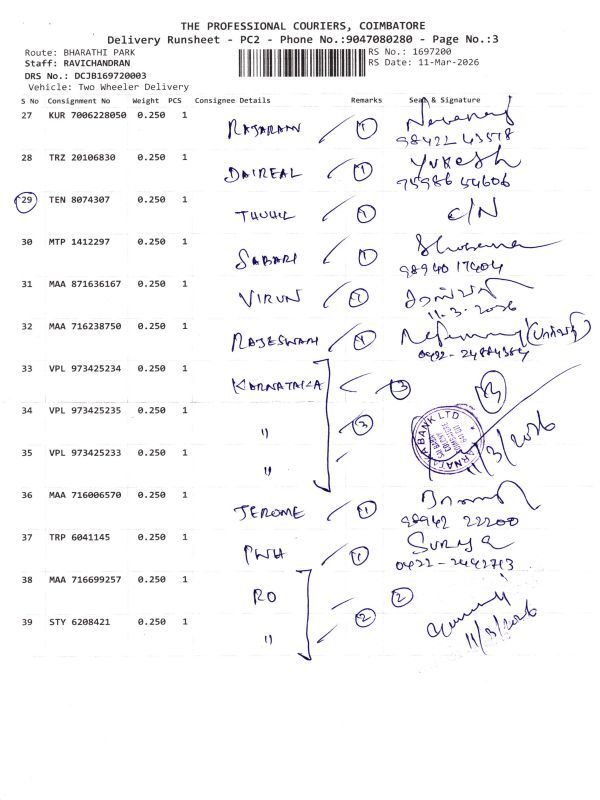 THE PROFESSIONAL COURIERS, COIMBATORE
Delivery Runsheet - PC2 - Phone No.:9047080280 - Page No.:3
Route: BHARATHI PARK
RS No.: 1697200
Staff: RAVICHANDRAN
RS Date: 11-Mar-2026
DRS No.: DCJB169720003
Vehicle: Two Wheeler Delivery
S No Consignment No Weight PCS Consignee Details Remarks Seal & Signature
27 KUR 7006228050 0.250 1
RAJARAM 1
98422 43578
28 TRZ 20106830 0.250 1 Yukesh
DAIREAL 1 75986 54606
29 TEN 8074307 0.250 1
1 C/N
30 MTP 1412297 0.250 1
SABARI 1 98940 17404
31 MAA 871636167 0.250 1
VIRUN 1 11.3.2026
32 MAA 716238750 0.250 1
RAJESWARI 1
33 VPL 973425234 0.250 1
KARNATAKA 3
34 VPL 973425235 0.250 1
" 3
KARNATAKA BANK LTD
11/3/2026
35 VPL 973425233 0.250 1
"
36 MAA 716006570 0.250 1
JEROME 1 98942 22200
37 TRP 6041145 0.250 1 Surya
PWH 1 0422-2442713
38 MAA 716699257 0.250 1
RO 2
39 STY 6208421 0.250 1
" 2 11/3/2026